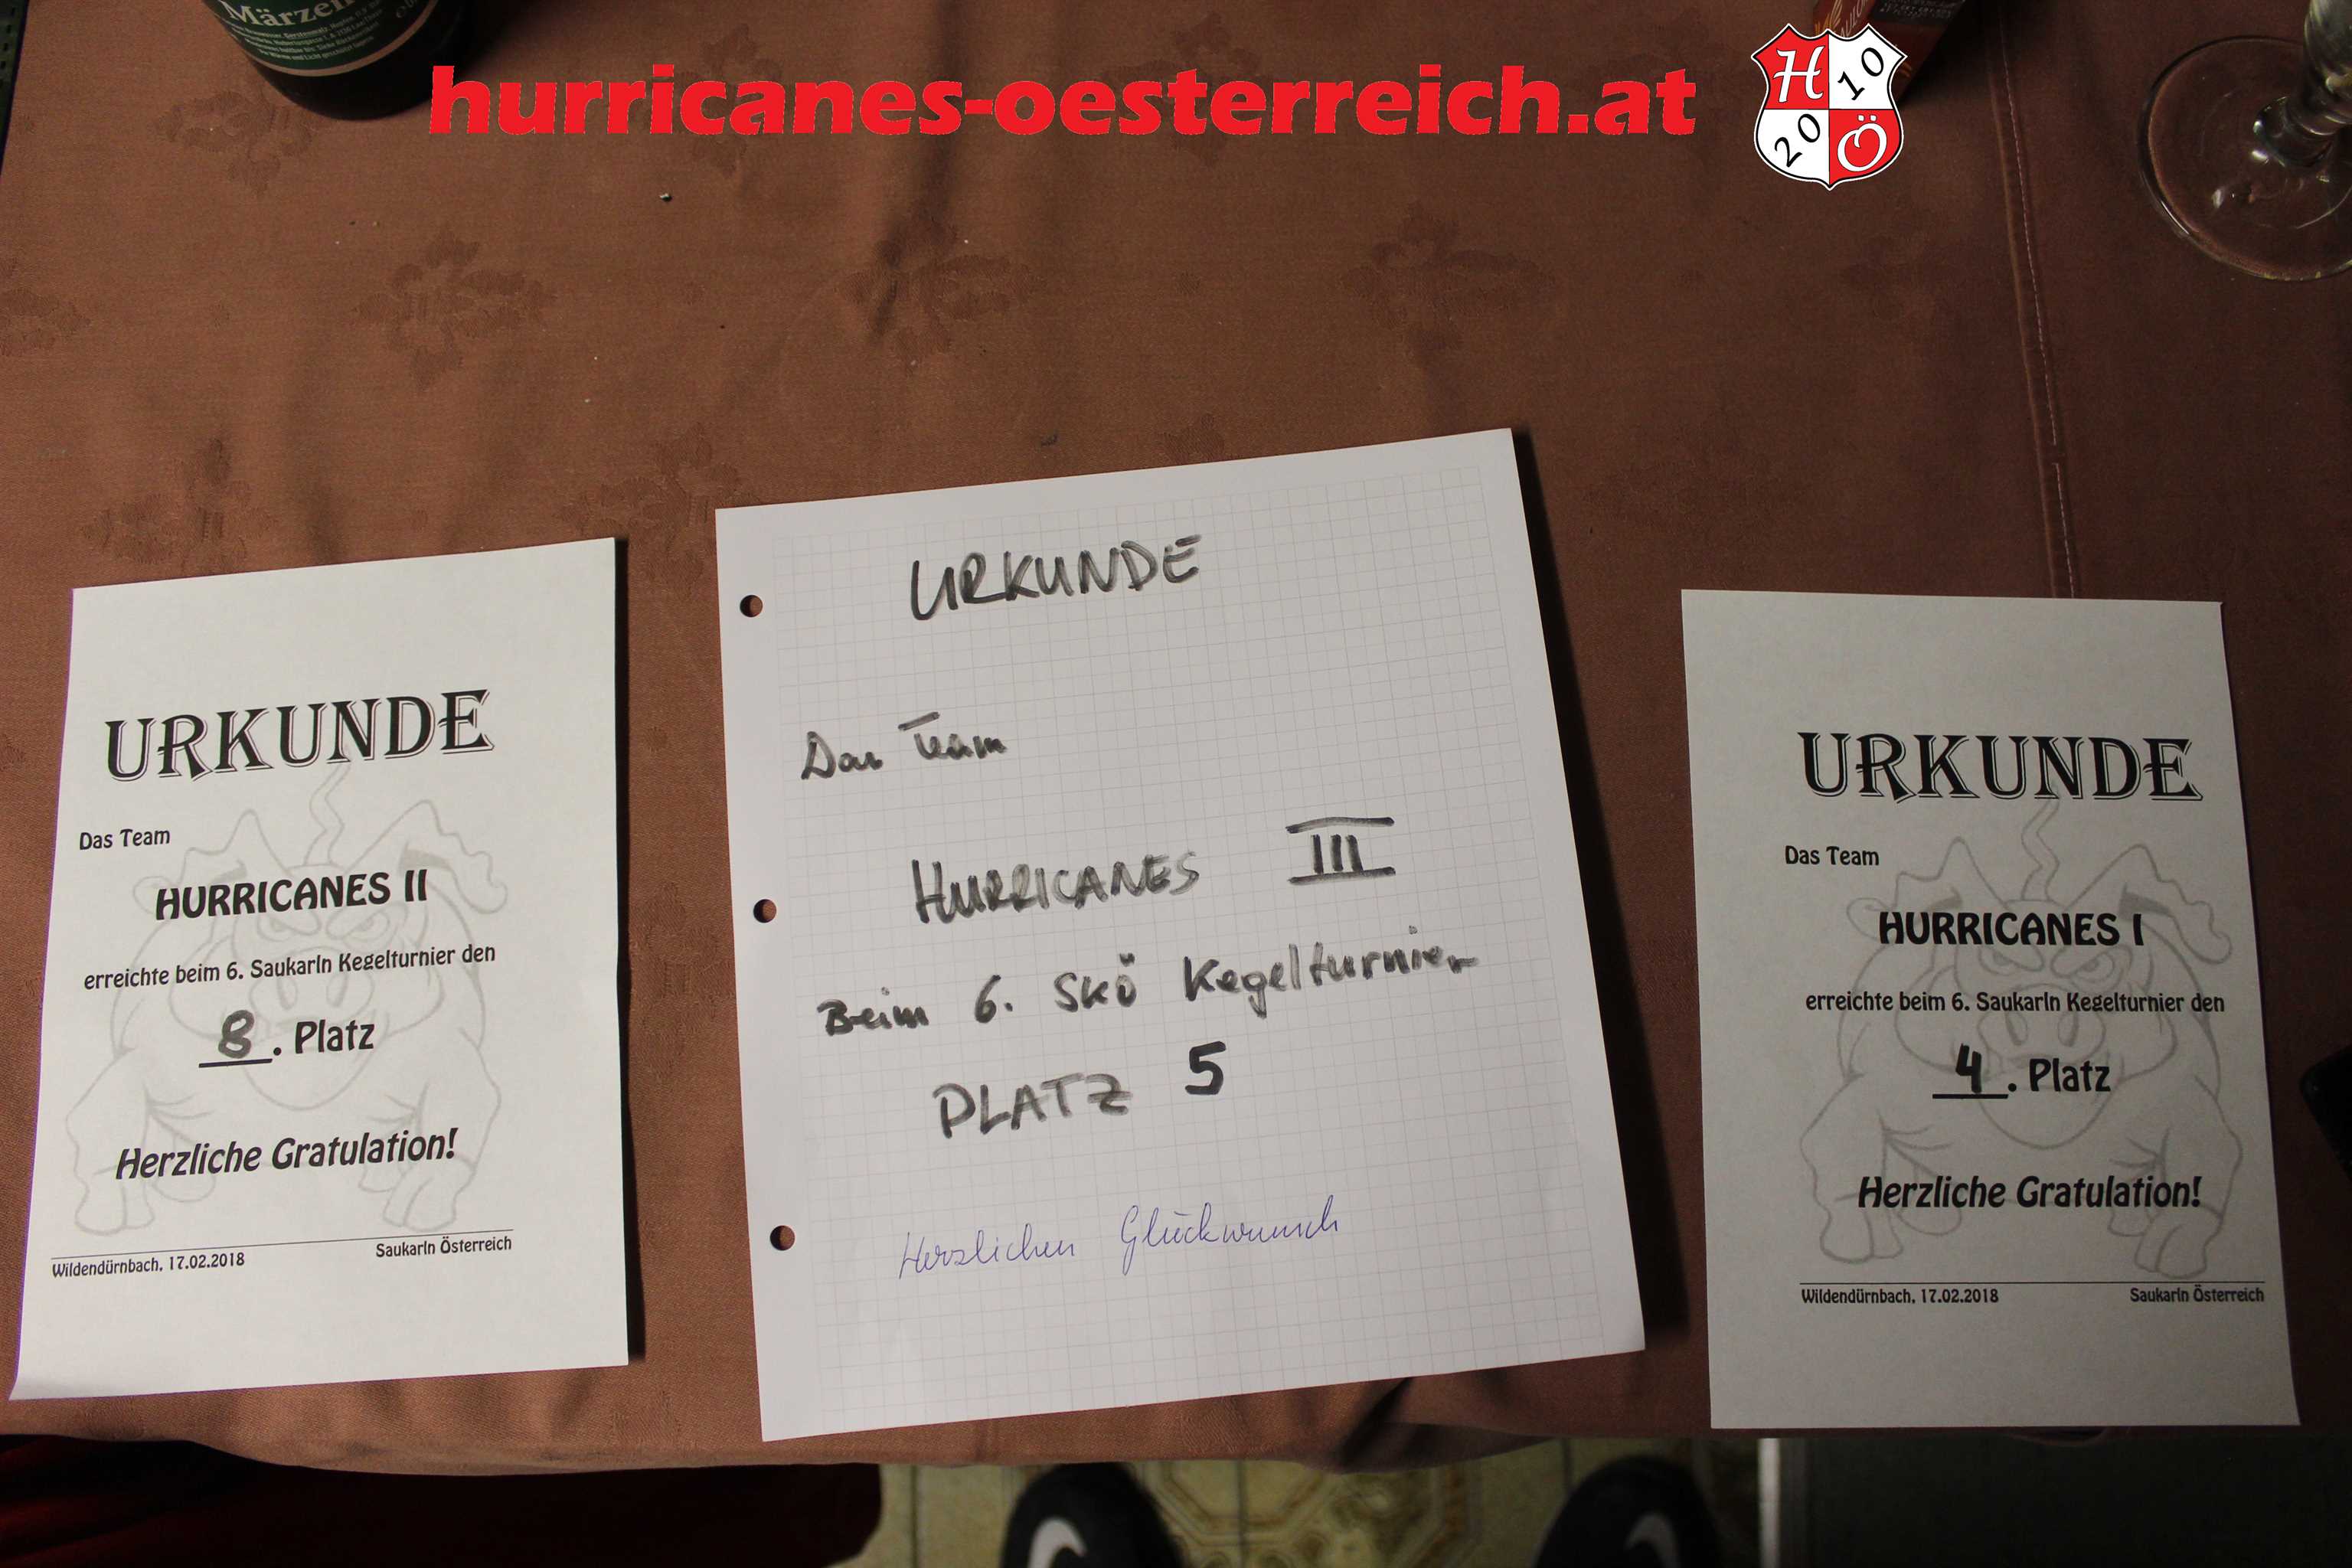 Märzen
hurricanes-oesterreich.at
H 10
20 Ö
URKUNDE
Das Team
HURRICANES II
erreichte beim 6. Saukarln Kegelturnier den
8. Platz
Herzliche Gratulation!
Wildendürnbach, 17.02.2018
Saukarln Österreich
URKUNDE
Das Team
HURRICANES III
Beim 6. SKÖ Kegelturnier
PLATZ 5
Herzlichen Glückwunsch
URKUNDE
Das Team
HURRICANES I
erreichte beim 6. Saukarln Kegelturnier den
4. Platz
Herzliche Gratulation!
Wildendürnbach, 17.02.2018
Saukarln Österreich